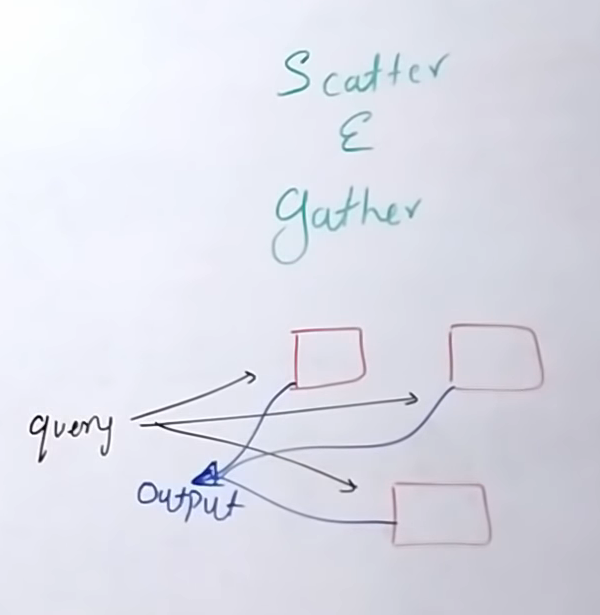 Scatter
&
Gather
query
Output